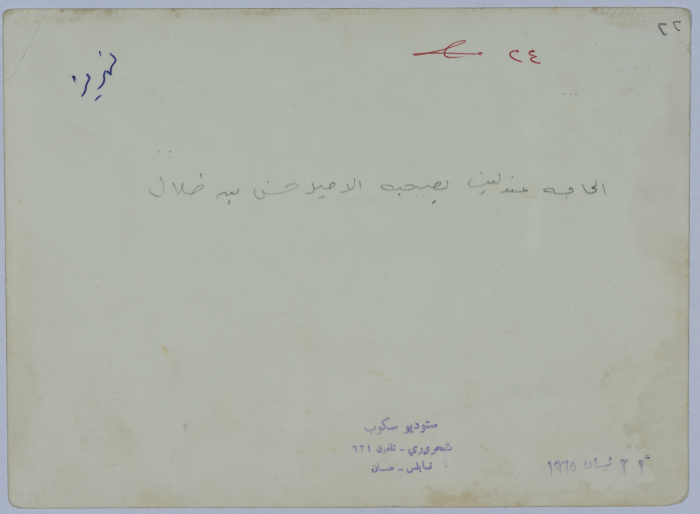 ٢٢
٢٤
الحاجه عندليب بصحبه الامير حسن بن طلال
ستوديو سكوب
شحروري - تلفون ٦٢١
نابلس - عمان
نيسان ١٩٦٥